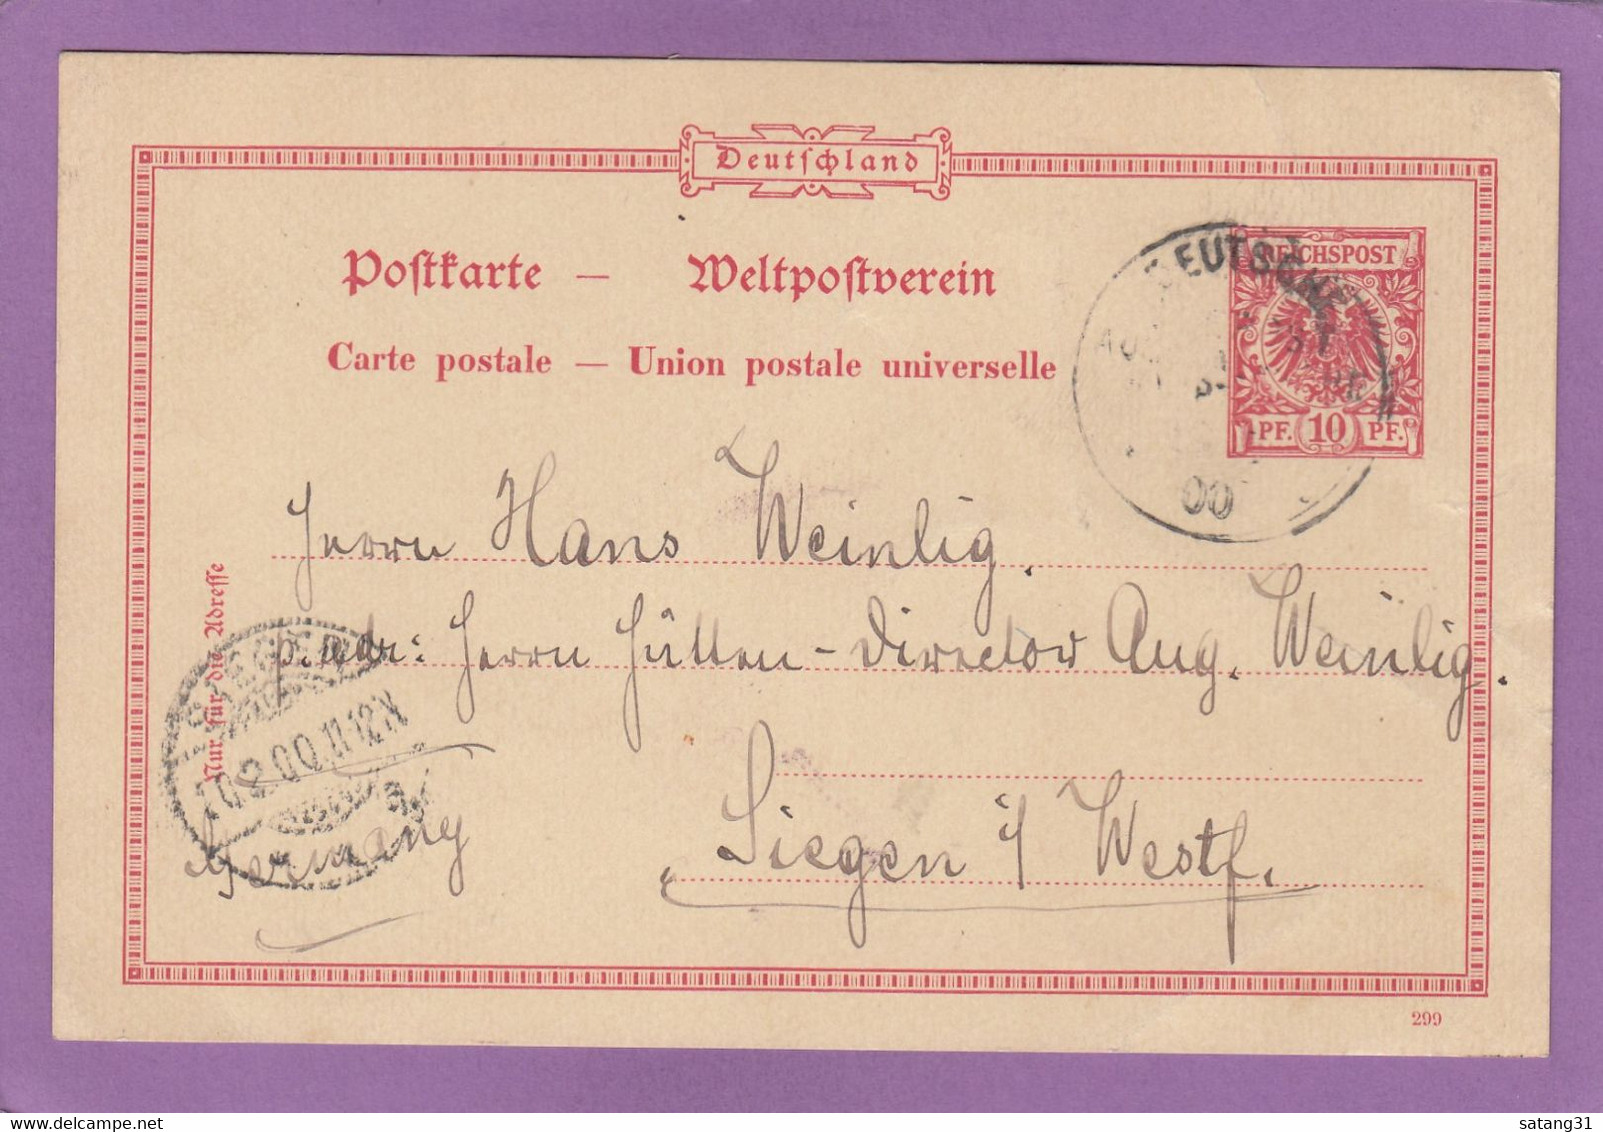 Deutschland
Postkarte — Weltpostverein
Carte postale — Union postale universelle
DEUTSCHE
00
REICHSPOST
PF. 10 PF.
Nur für die Adresse
Herrn Hans Weinlig.
p. adr: Herrn Hütten-Director Aug. Weinlig.
SIEGEN
10 8 00. 11-12 N
Siegen i/ Westf.
Germany
299
satang31